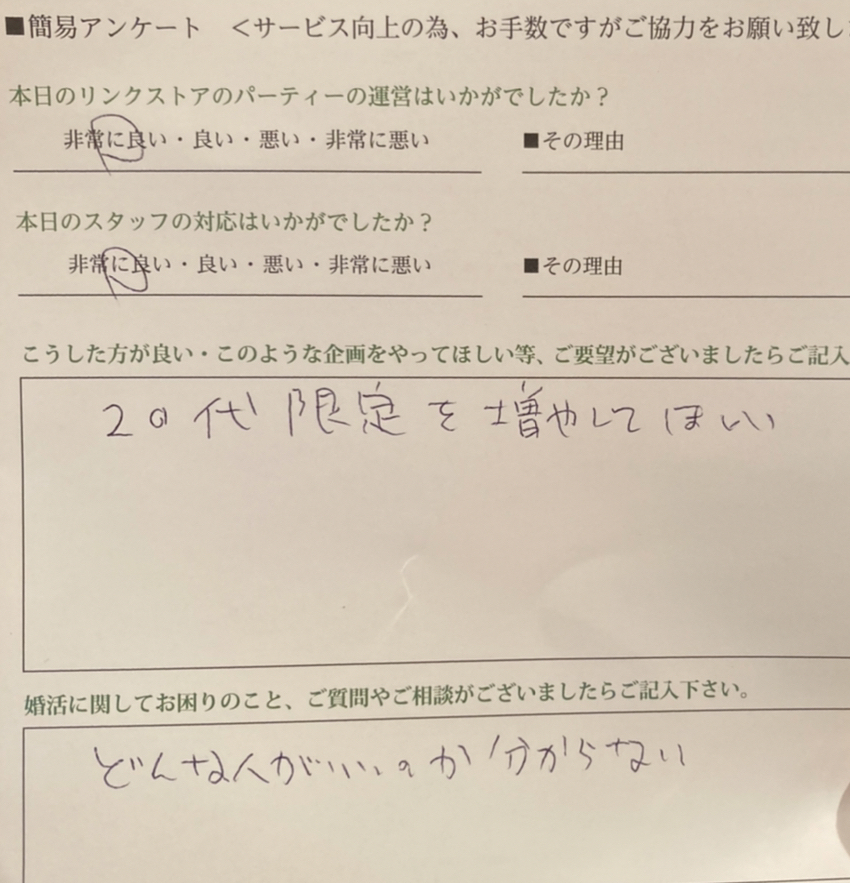 ■簡易アンケート ＜サービス向上の為、お手数ですがご協力をお願い致し
本日のリンクストアのパーティーの運営はいかがでしたか？
非常に良い・良い・悪い・非常に悪い ■その理由
本日のスタッフの対応はいかがでしたか？
非常に良い・良い・悪い・非常に悪い ■その理由
こうした方が良い・このような企画をやってほしい等、ご要望がございましたらご記入
20代限定を増やしてほしい
婚活に関してお困りのこと、ご質問やご相談がございましたらご記入下さい。
どんな人がいいのか分からない